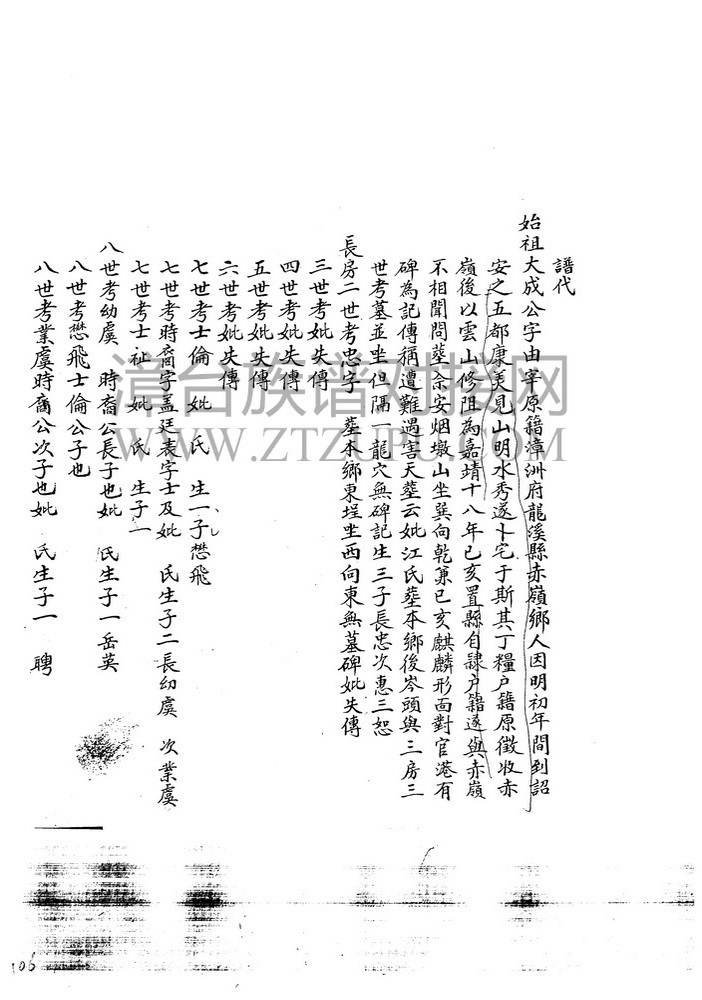 譜代
始祖大成公字由宰原籍漳洲府龍溪縣赤嶺鄉人因明初年間到詔
安之五都康美見山明水秀遂卜宅于斯其丁糧户籍原徵收赤
嶺後以雲山修阻為嘉靖十八年已亥置縣自隸户籍遂與赤嶺
不相聞問塟余安烟墩山坐巽向乾兼已亥麒麟形面對官港有
碑為記傳稱遭難遇害天塟云妣江氏塟本鄉後岑頭與三房三
世考墓並坐但隔一龍穴無碑記生三子長忠次惠三恕
長房二世考忠字 塟本鄉東埕坐西向東無墓碑妣失傳
三世考妣失傳
四世考妣失傳
五世考妣失傳
六世考妣失傳
七世考士倫 妣 氏 生一子懋飛
七世考時裔字孟廷表字士及妣 氏生子二長幼虞 次業虞
七世考士祉 妣 氏 生子一
八世考幼虞 時裔公長子也妣 氏生子一岳英
八世考懋飛士倫公子也
八世考業虞時裔公次子也妣 氏生子一 聘
漳台族谱对接网
WWW.ZTZUPU.COM
106